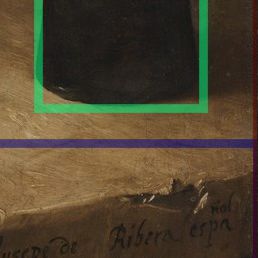 usepe de Ribera espa
ñol